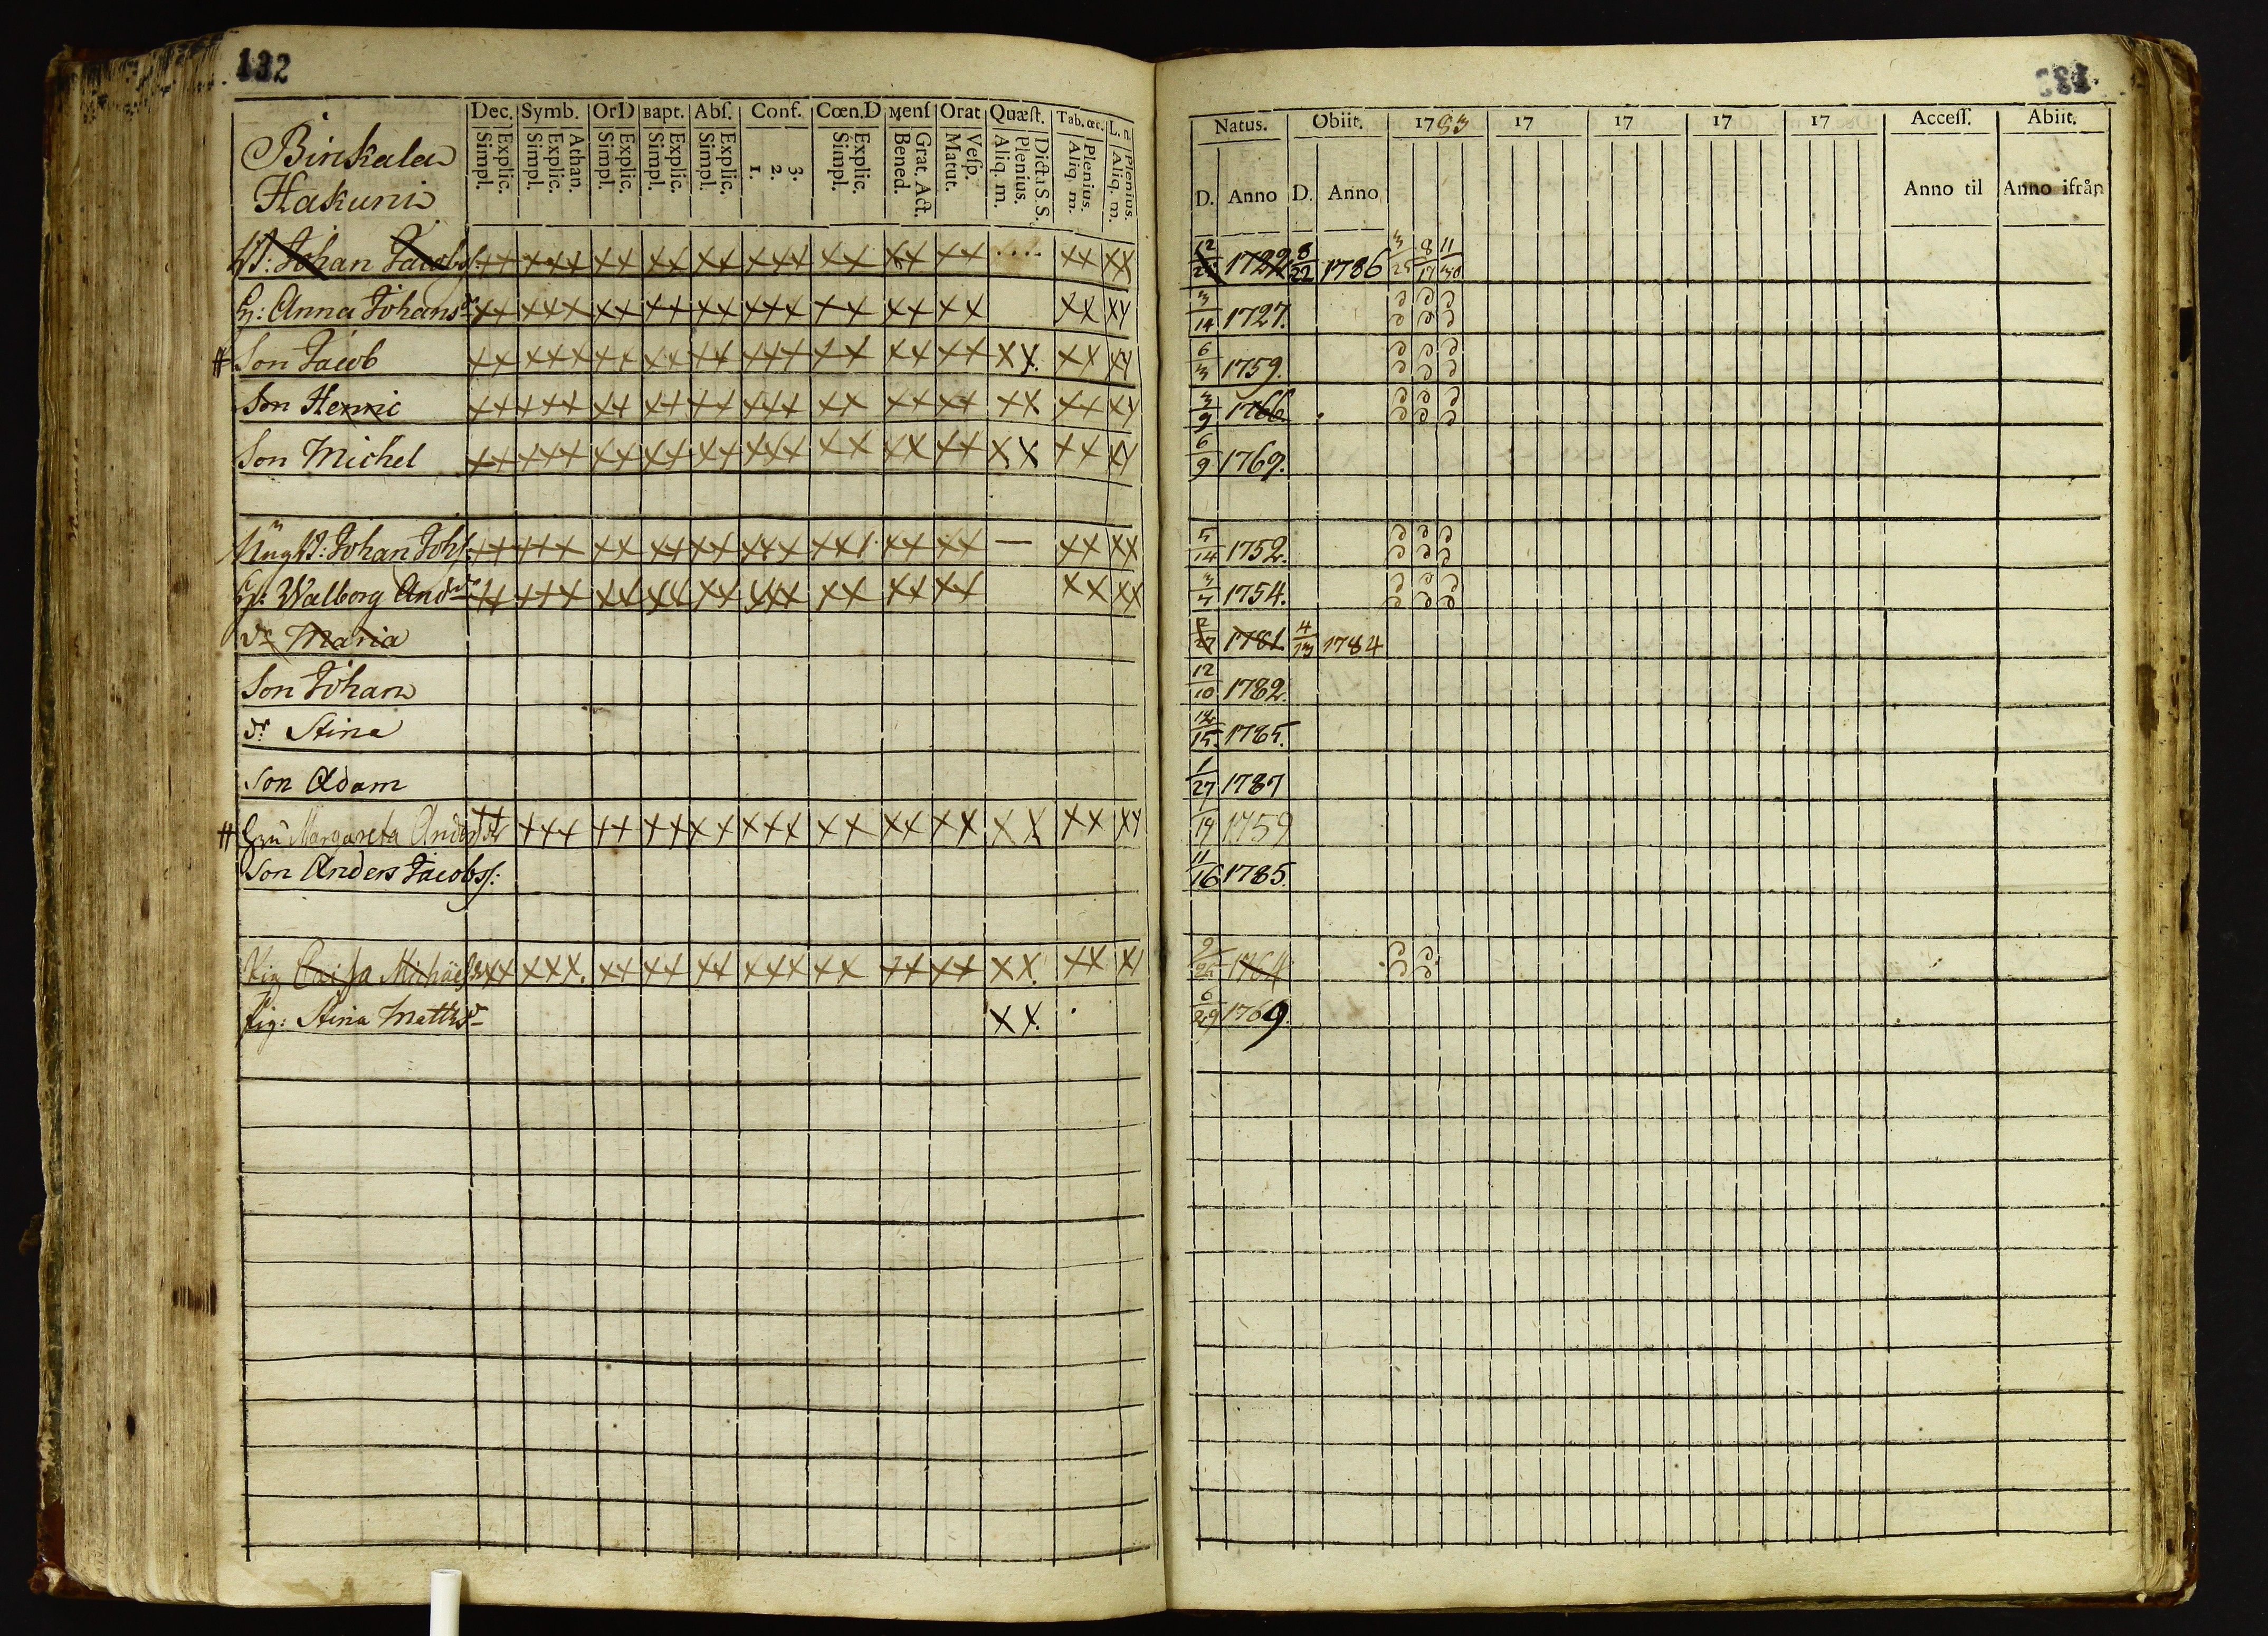 132
Dec. Symb. OrD Bapt. Abſ. Conf. Cœn.D Menſ Orat Quæſt. Tab. œc. L. n.
Explic. Simpl. Athan. Explic. Simpl. Explic. Simpl. Explic. Simpl. Explic. Simpl. 3. 2. 1. Explic. Simpl. Grat. Act. Bened. Veſp. Matut. Dicta S.S. Plenius. Aliq. m. Plenius. Aliq. m. Plenius. Aliq. m.
Natus. Obiit. 1783 17 17 17 17 Acceſſ. Abiit.
D. Anno D. Anno Anno til Anno ifrån
Birkala
Hakuni
Johan Jacobs: 12 1722 8/22 1786 3/25 8/17 11/30
H: Anna Johans dr 3/14 1727.
# Son Jacob 6/3 1759.
Son Henric 3/9 1766.
Son Michel 6/9 1769.
Ung B: Johan Johs: 5/14 1752.
H: Walborg And dr 3/7 1754.
dr Maria 2/27 1781. 4/13 1784
Son Johan 12/10 1782.
dr Stina 15. 1785.
Son Adam 1/27 1787
# Margareta Anders dr 1/19 1759
Son Anders Jacobs: 11/16 1785.
Pig Caisa Michäels 9 1764
Pig: Stina Matts dr 6/29 1769.